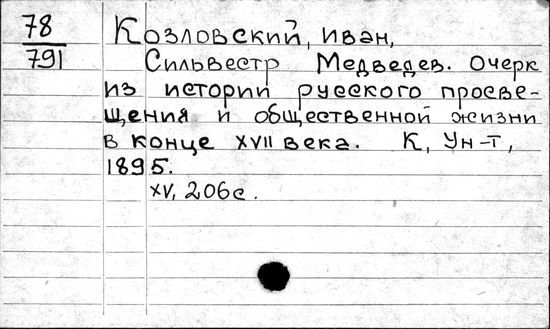 78
791
Козловский, Иван,
Сильвестр Медведев. Очерк
из истории русского просве-
щения и общественной жизни
в конце XVII века. К, Ун-т,
1895.
XV, 206с.